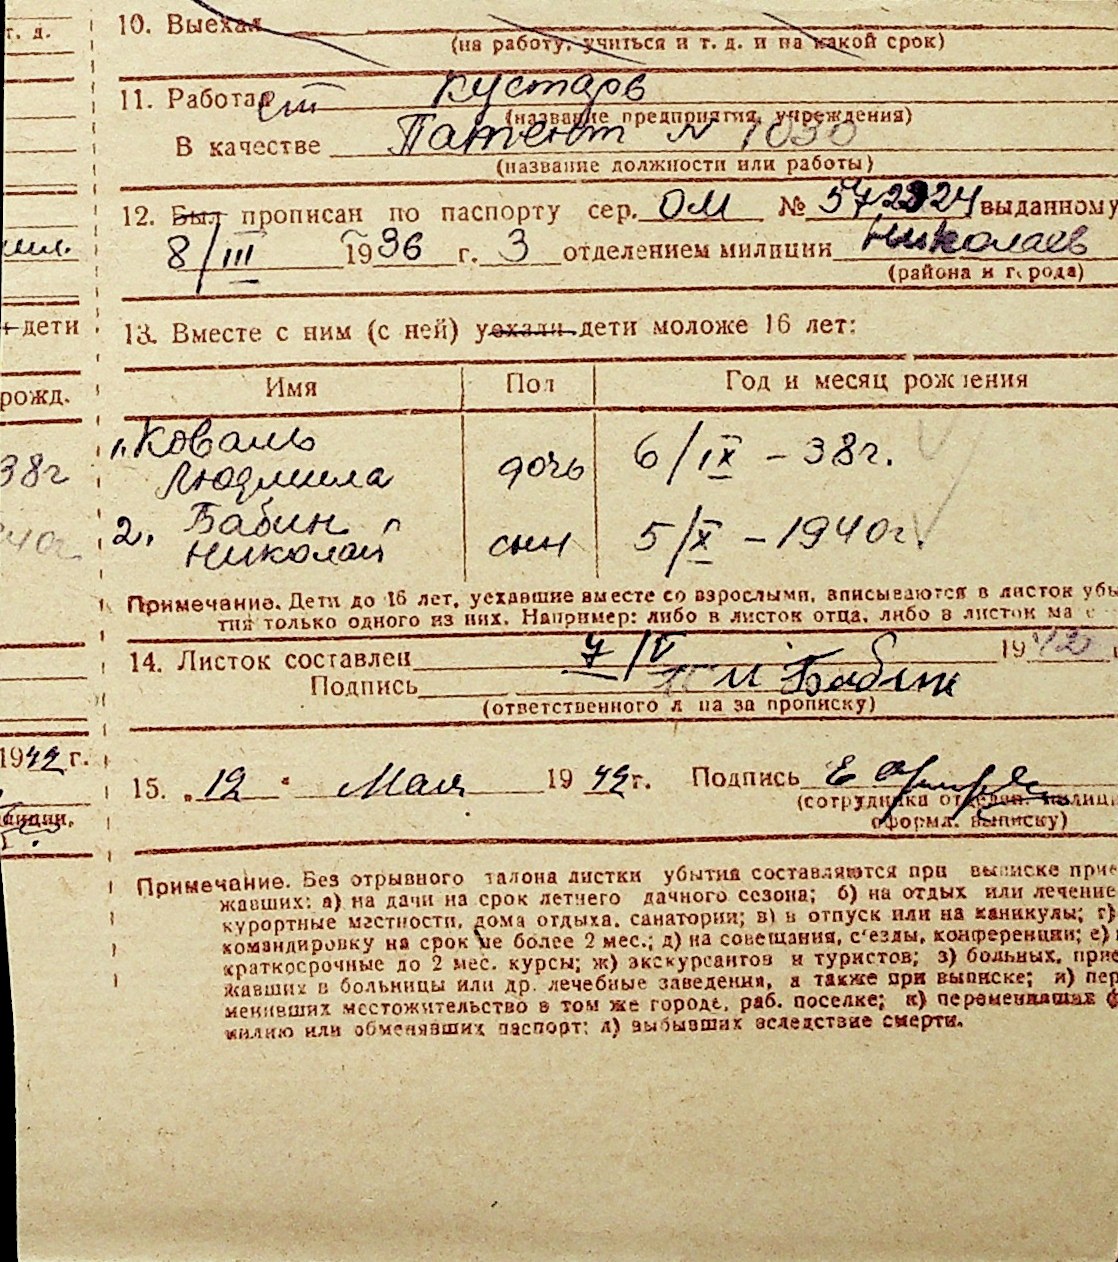 т. д.
10. Выехал
(на работу, учиться и т. д. и на какой срок)
11. Работает кустарь
(название предприятия, учреждения)
В качестве Патент N 1030
(название должности или работы)
12. Был прописан по паспорту сер. ОМ № выданному
8/III 1936 г. 3 отделением милиции Николаев
(района и города)
дети
13. Вместе с ним (с ней) уехали дети моложе 16 лет:
рожд.
Имя Пол Год и месяц рождения
1. Коваль
38г Людмила дочь 6/IX – 38г.
2. Бабин
40г Николай сын 5/X – 1940г.
Примечание. Дети до 16 лет, уехавшие вместе со взрослыми, вписываются в листок убы
тия только одного из них. Например: либо в листок отца, либо в листок ма
14. Листок составлен 7/V 1942
Подпись Бабин
(ответственного лица за прописку)
1942 г.
15. „12 " Мая 1942г. Подпись
(сотрудника отделен. милиц
оформл. выписку)
Примечание. Без отрывного талона листки убытия составляются при выписке прие
жавших: а) на дачи на срок летнего дачного сезона; б) на отдых или лечение
курортные местности, дома отдыха, санатории; в) в отпуск или на каникулы; г)
командировку на срок не более 2 мес.; д) на совещания, с'езды, конференции; е)
краткосрочные до 2 мес. курсы; ж) экскурсантов и туристов; з) больных, прие
жавших в больницы или др. лечебные заведения, а также при выписке; и) пер
менивших местожительство в том же городе, раб. поселке; к) переменивших ф
милию или обменявших паспорт; л) выбывших вследствие смерти.